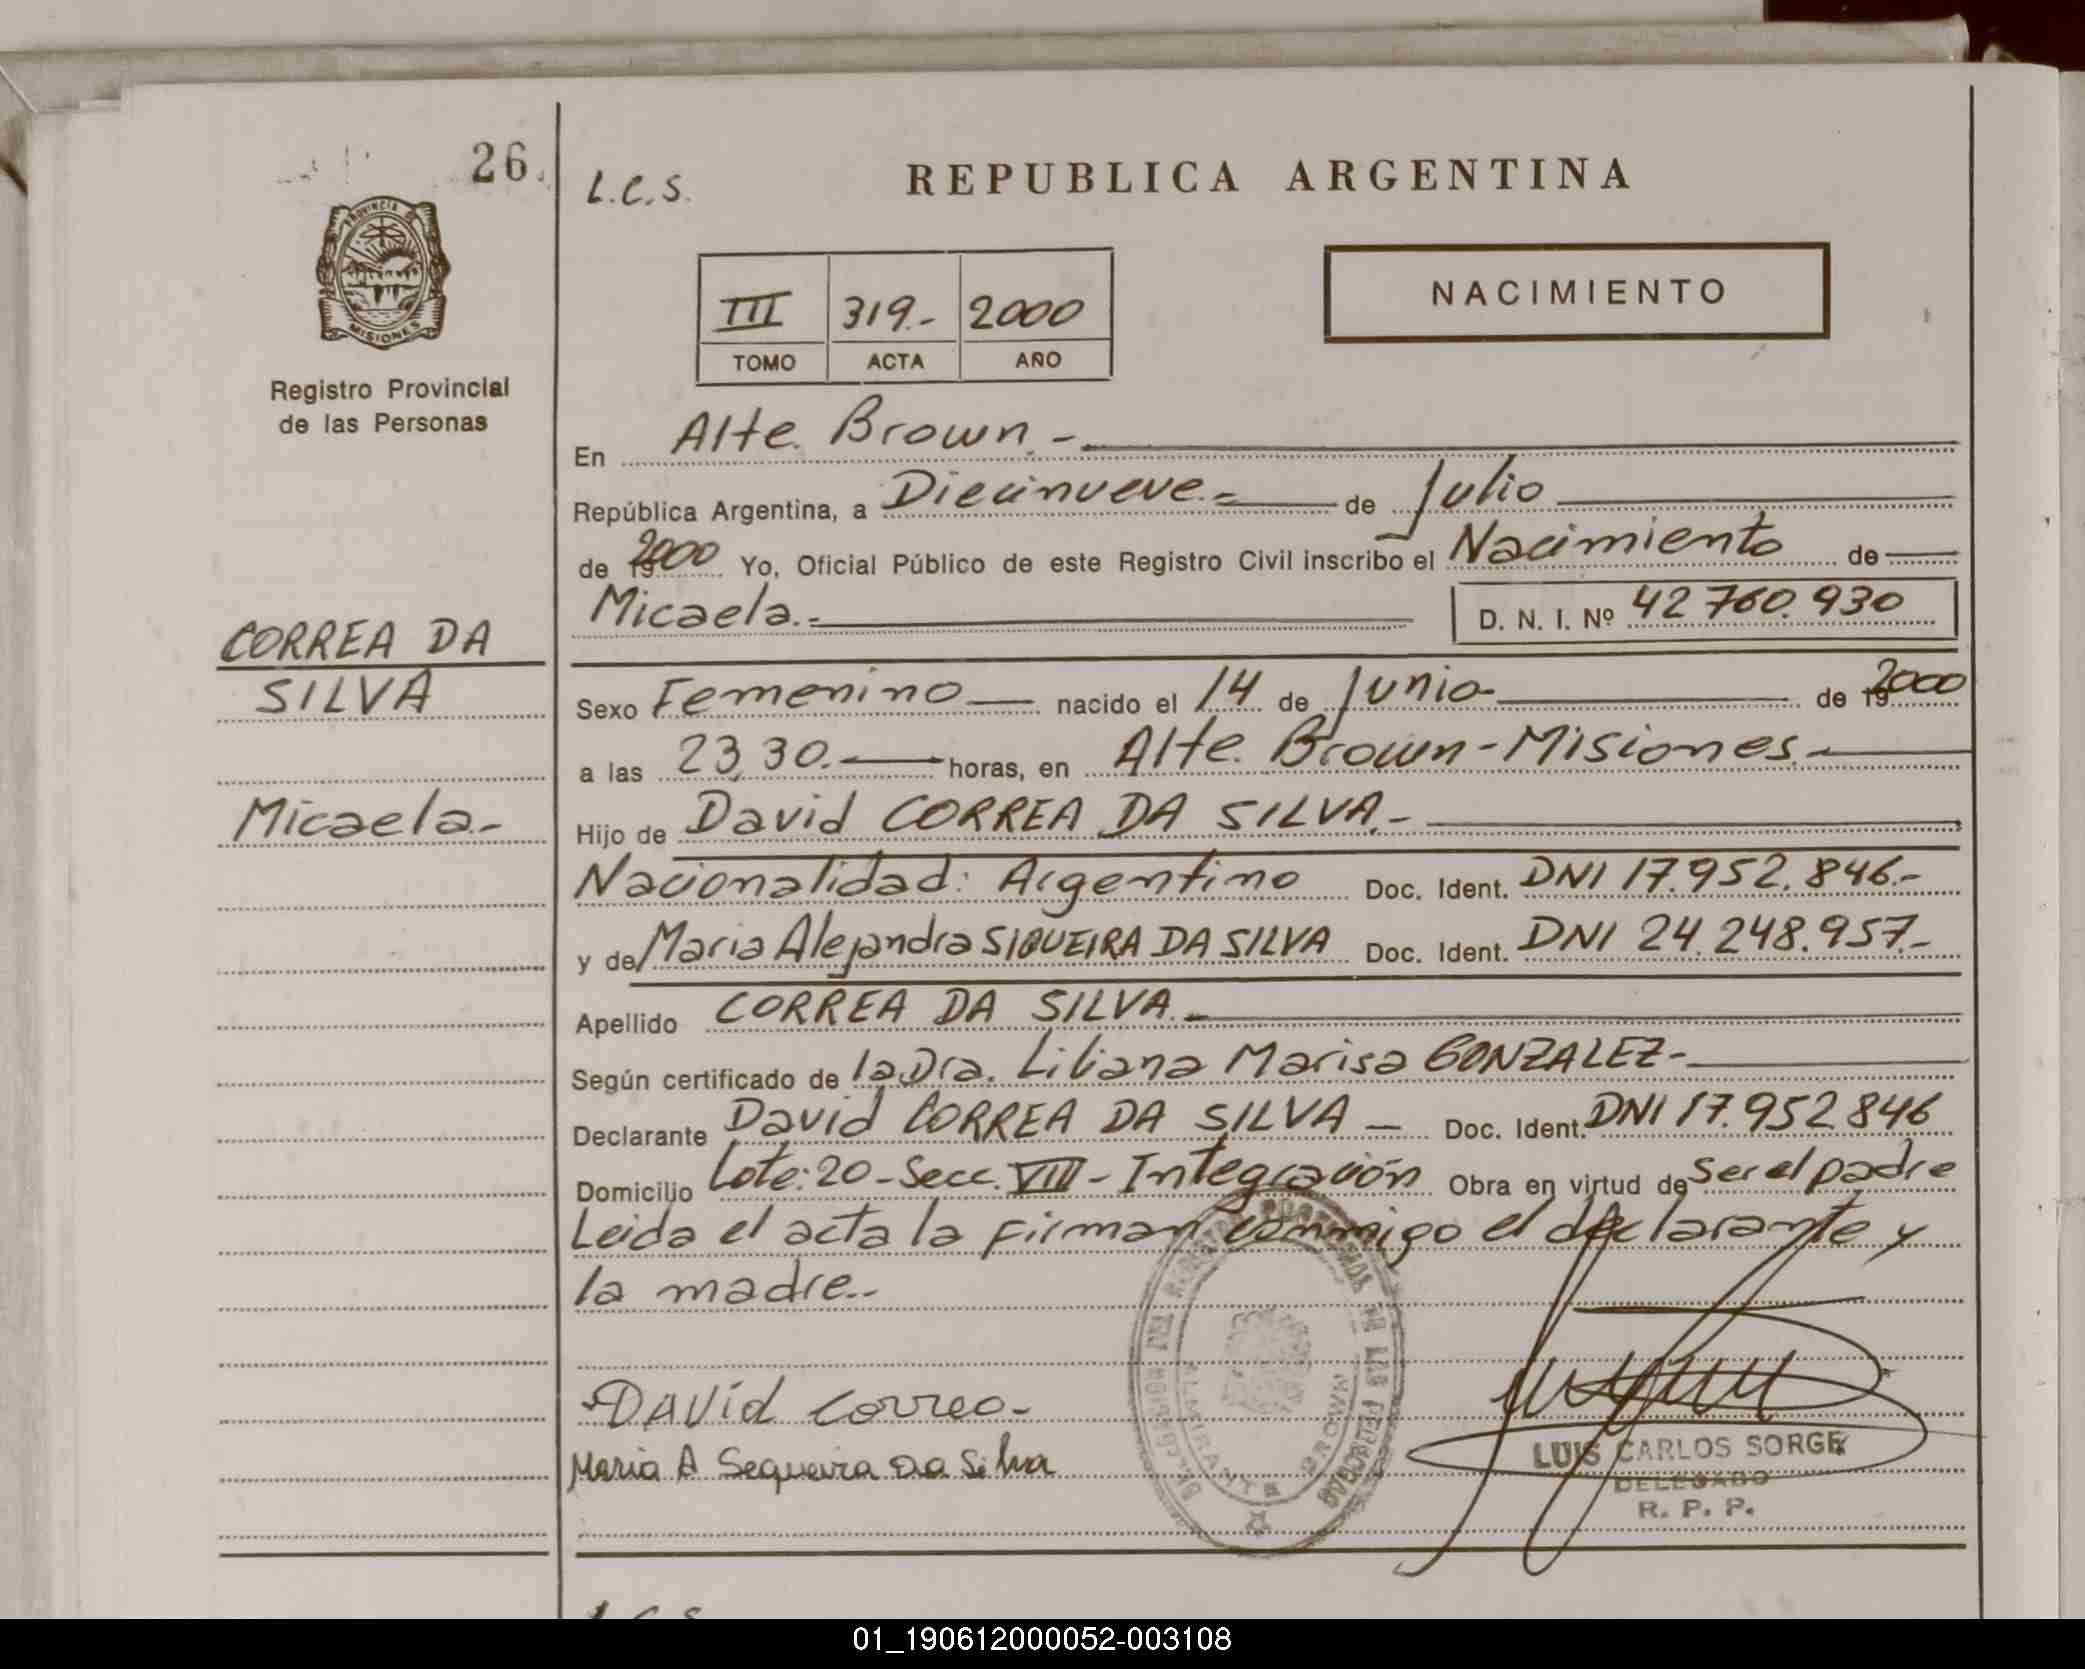 26.
L.C.S.
REPUBLICA ARGENTINA
PROVINCIA DE
MISIONES
Registro Provincial
de las Personas
III 319.- 2000
TOMO ACTA AÑO
NACIMIENTO
En Alte. Brown.-
República Argentina, a Diecinueve.= de Julio
de 2000 Yo, Oficial Público de este Registro Civil inscribo el Nacimiento de
Micaela.= D. N. I. Nº 42 760.930
CORREA DA
SILVA
Micaela.-
Sexo Femenino nacido el 14 de Junio- de 192000
a las 23,30. horas, en Alte. Brown-Misiones.-
Hijo de David CORREA DA SILVA.-
Nacionalidad: Argentino Doc. Ident. DNI 17.952.846.-
y de Maria Alejandra SIQUEIRA DA SILVA Doc. Ident. DNI 24.248.957.-
Apellido CORREA DA SILVA.-
Según certificado de la Dra. Liliana Marisa GONZALEZ-
Declarante David CORREA DA SILVA - Doc. Ident. DNI 17.952.846
Domicilio Lote: 20-Secc. VIII- Integración Obra en virtud de Ser el padre
Leida el acta la firman conmigo el declarante y
la madre.-
David Correa-
Maria A Sequeira Da Silva
REGISTRO PROVINCIAL DE LAS PERSONAS
ALMIRANTE BROWN
LUIS CARLOS SORGE
DELEGADO
R. P. P.
L.C.S.
01_190612000052-003108